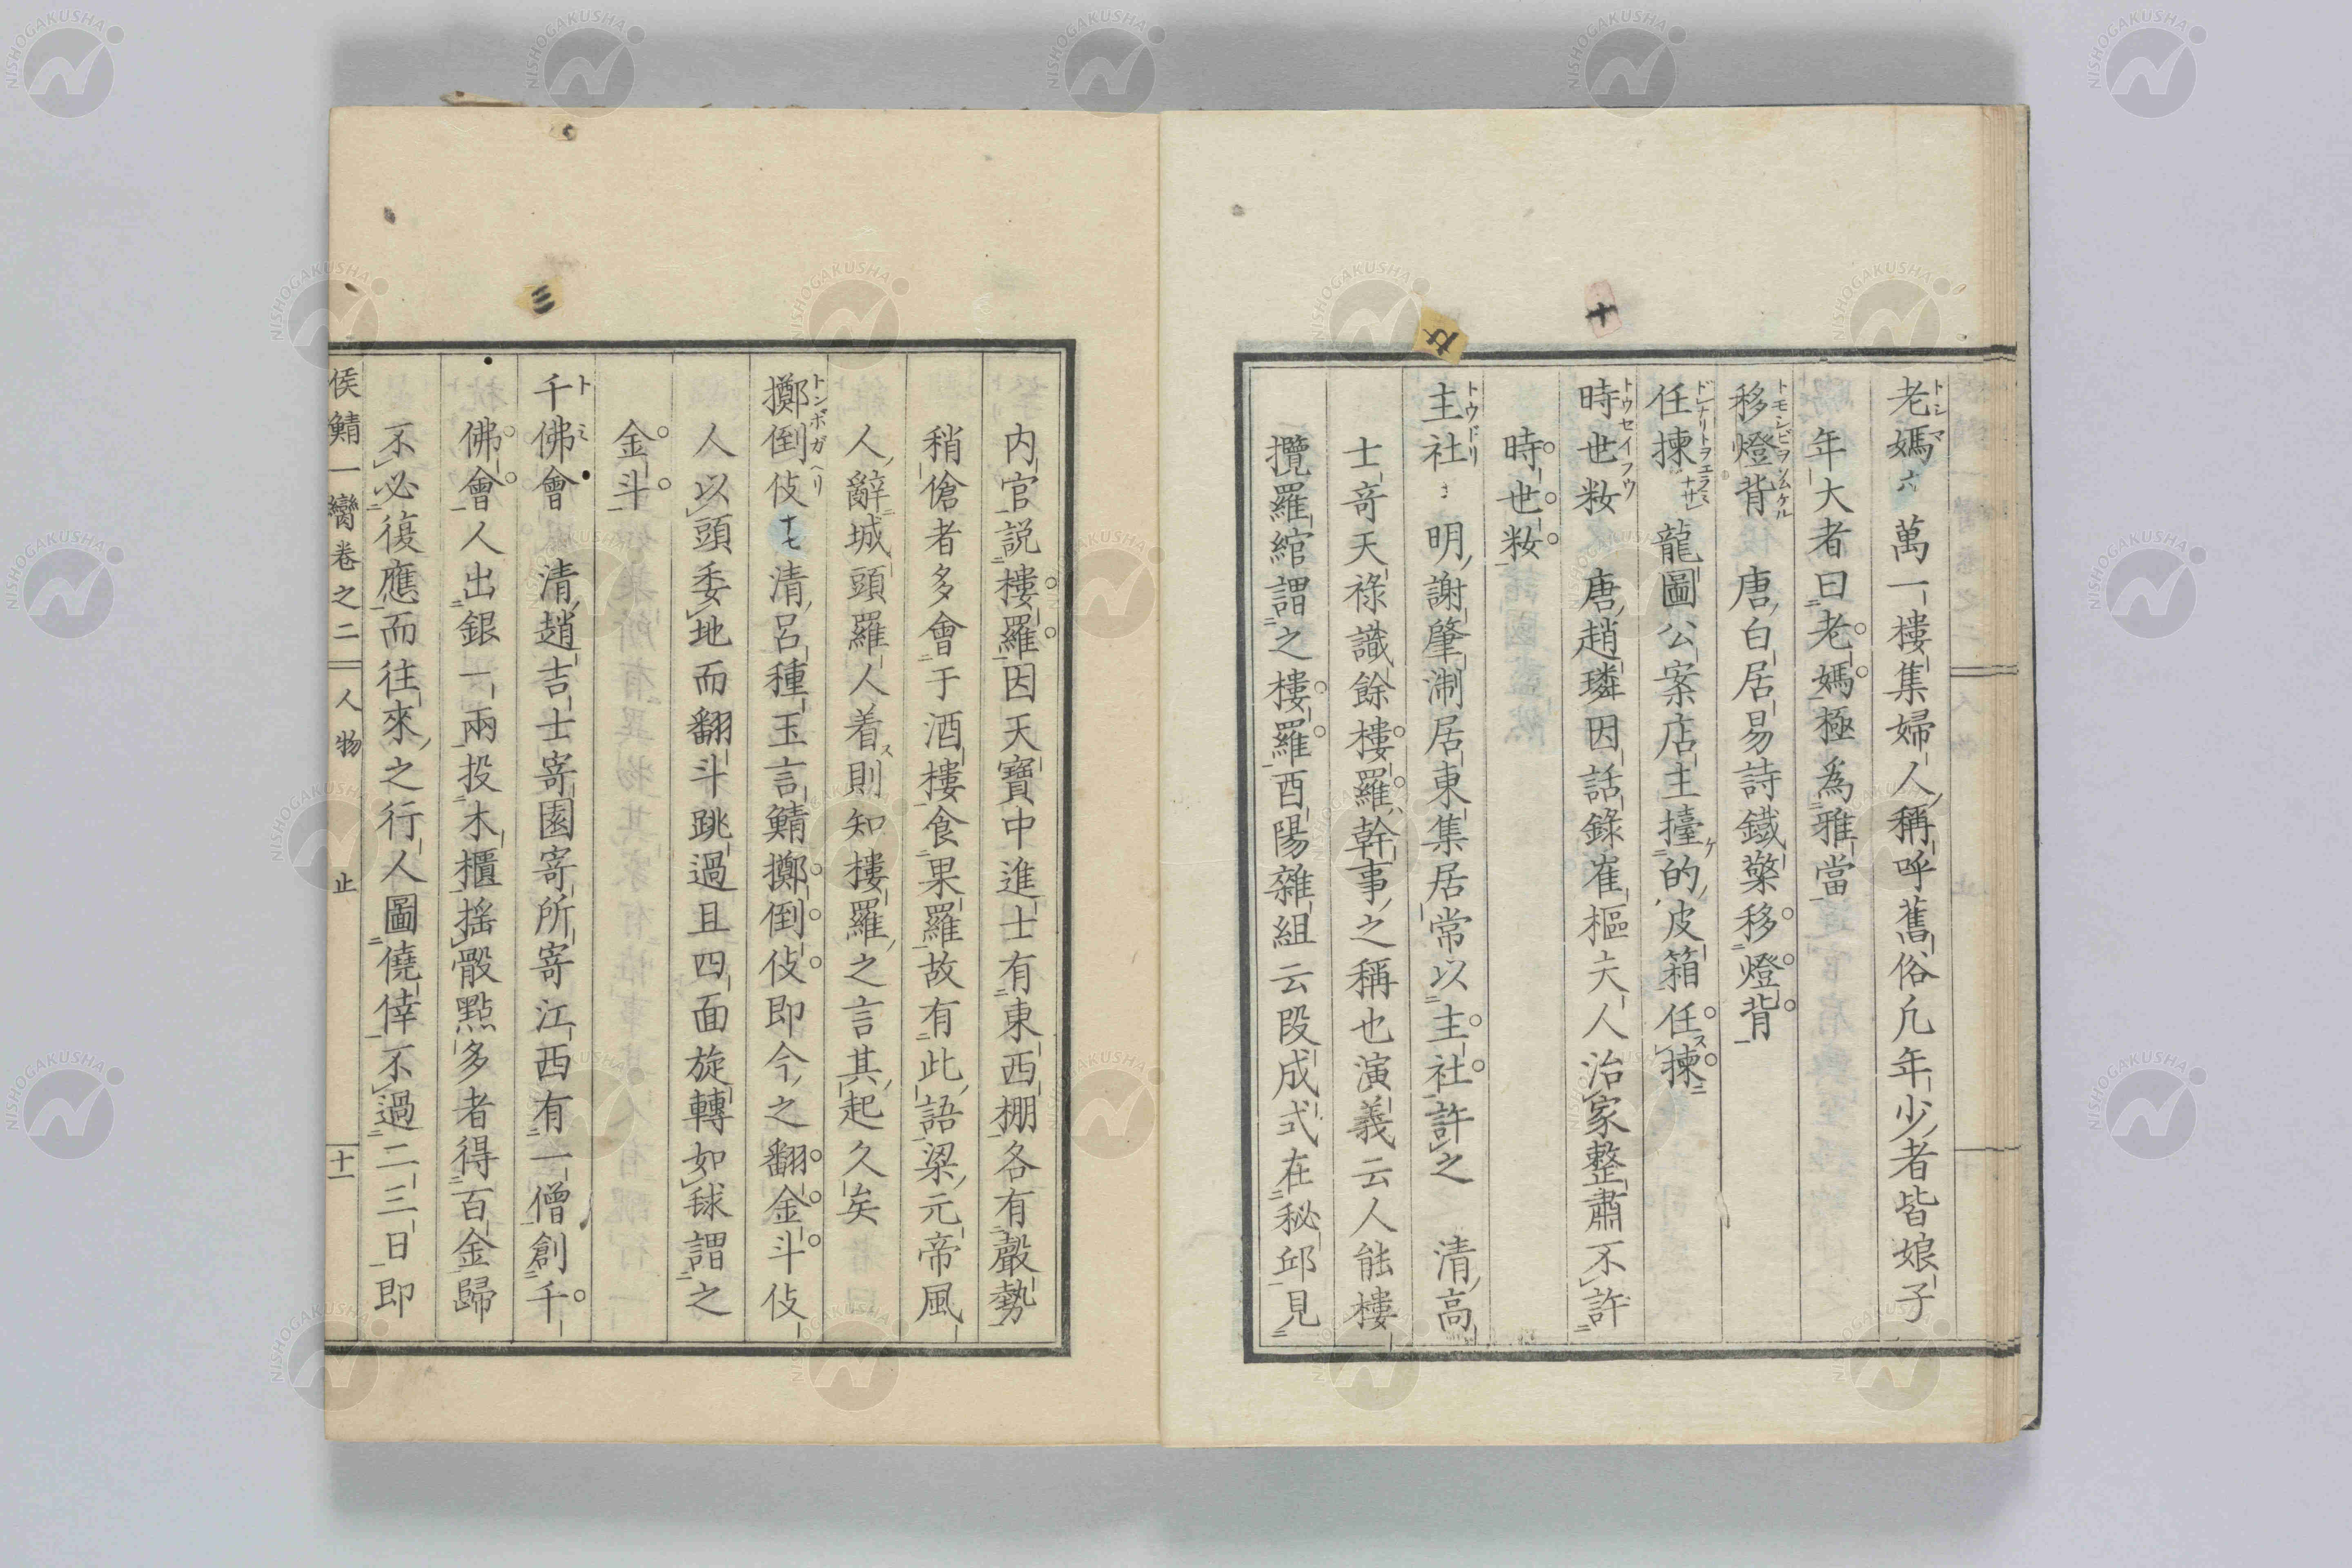 十
廾
老媽 六 萬一樓集婦人稱呼舊俗凢年少者皆娘子
年大者曰老媽極爲雅當
移燈背 唐白居易詩鐵檠移燈背
任揀 龍圖公案店主擡的皮箱任揀
時世妝 唐趙璘因話錄崔樞夫人治家整肅不許
時世妝
主社 明謝肇淛居東集居常以主社許之 清高
士奇天祿識餘樓羅幹事之稱也演義云人能樓
攬羅綰謂之樓羅酉陽雜組云段成式在秘邱見
內官説樓羅因天寶中進士有東西棚各有聲勢
稍傖者多會于酒樓食畢羅故有此語梁元帝風
人辭城頭羅人着則知樓羅之言其起久矣
擲倒伎 十七 清呂種玉言鯖擲倒伎即今之翻金斗伎
人以頭委地而翻斗跳過且四面旋轉如毬謂之
金斗
三
千佛會 清趙吉士寄園寄所寄江西有一僧創千
佛會人出銀一兩投木櫃搖骰點多者得百金歸
不必復應而往來之行人圖僥倖不過二三日即
侯鯖一臠卷之二 人物 止 十一
NISHOGAKUSHA